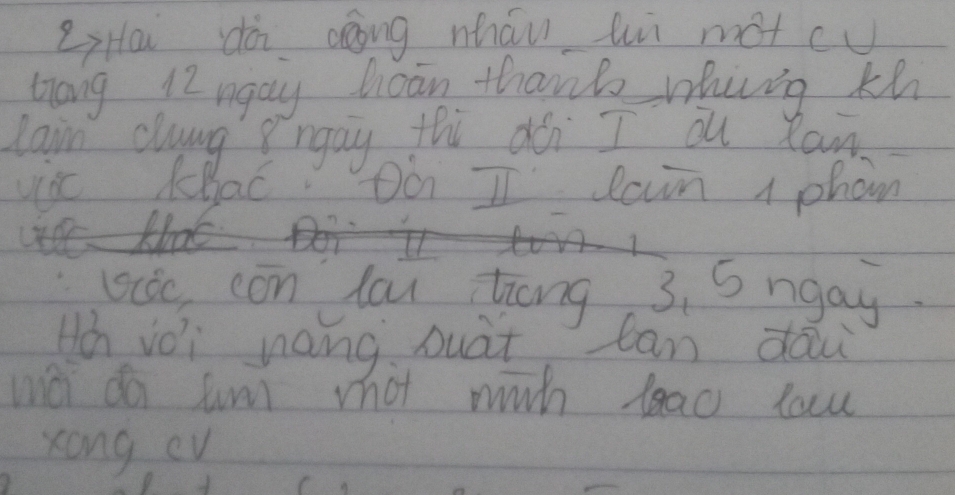 2, Hai đội công nhân làm một CV
trong 12 ngày hoàn thành nhưng kh
làm chung 8 ngày thì đội I đi làm
việc khác. Đội II làm 1 phần
việc khác Đội II làm 1
việc còn lại trong 3,5 ngày.
Hỏi với năng suất ban đầu
mỗi đội làm một mình bao lâu
xong CV